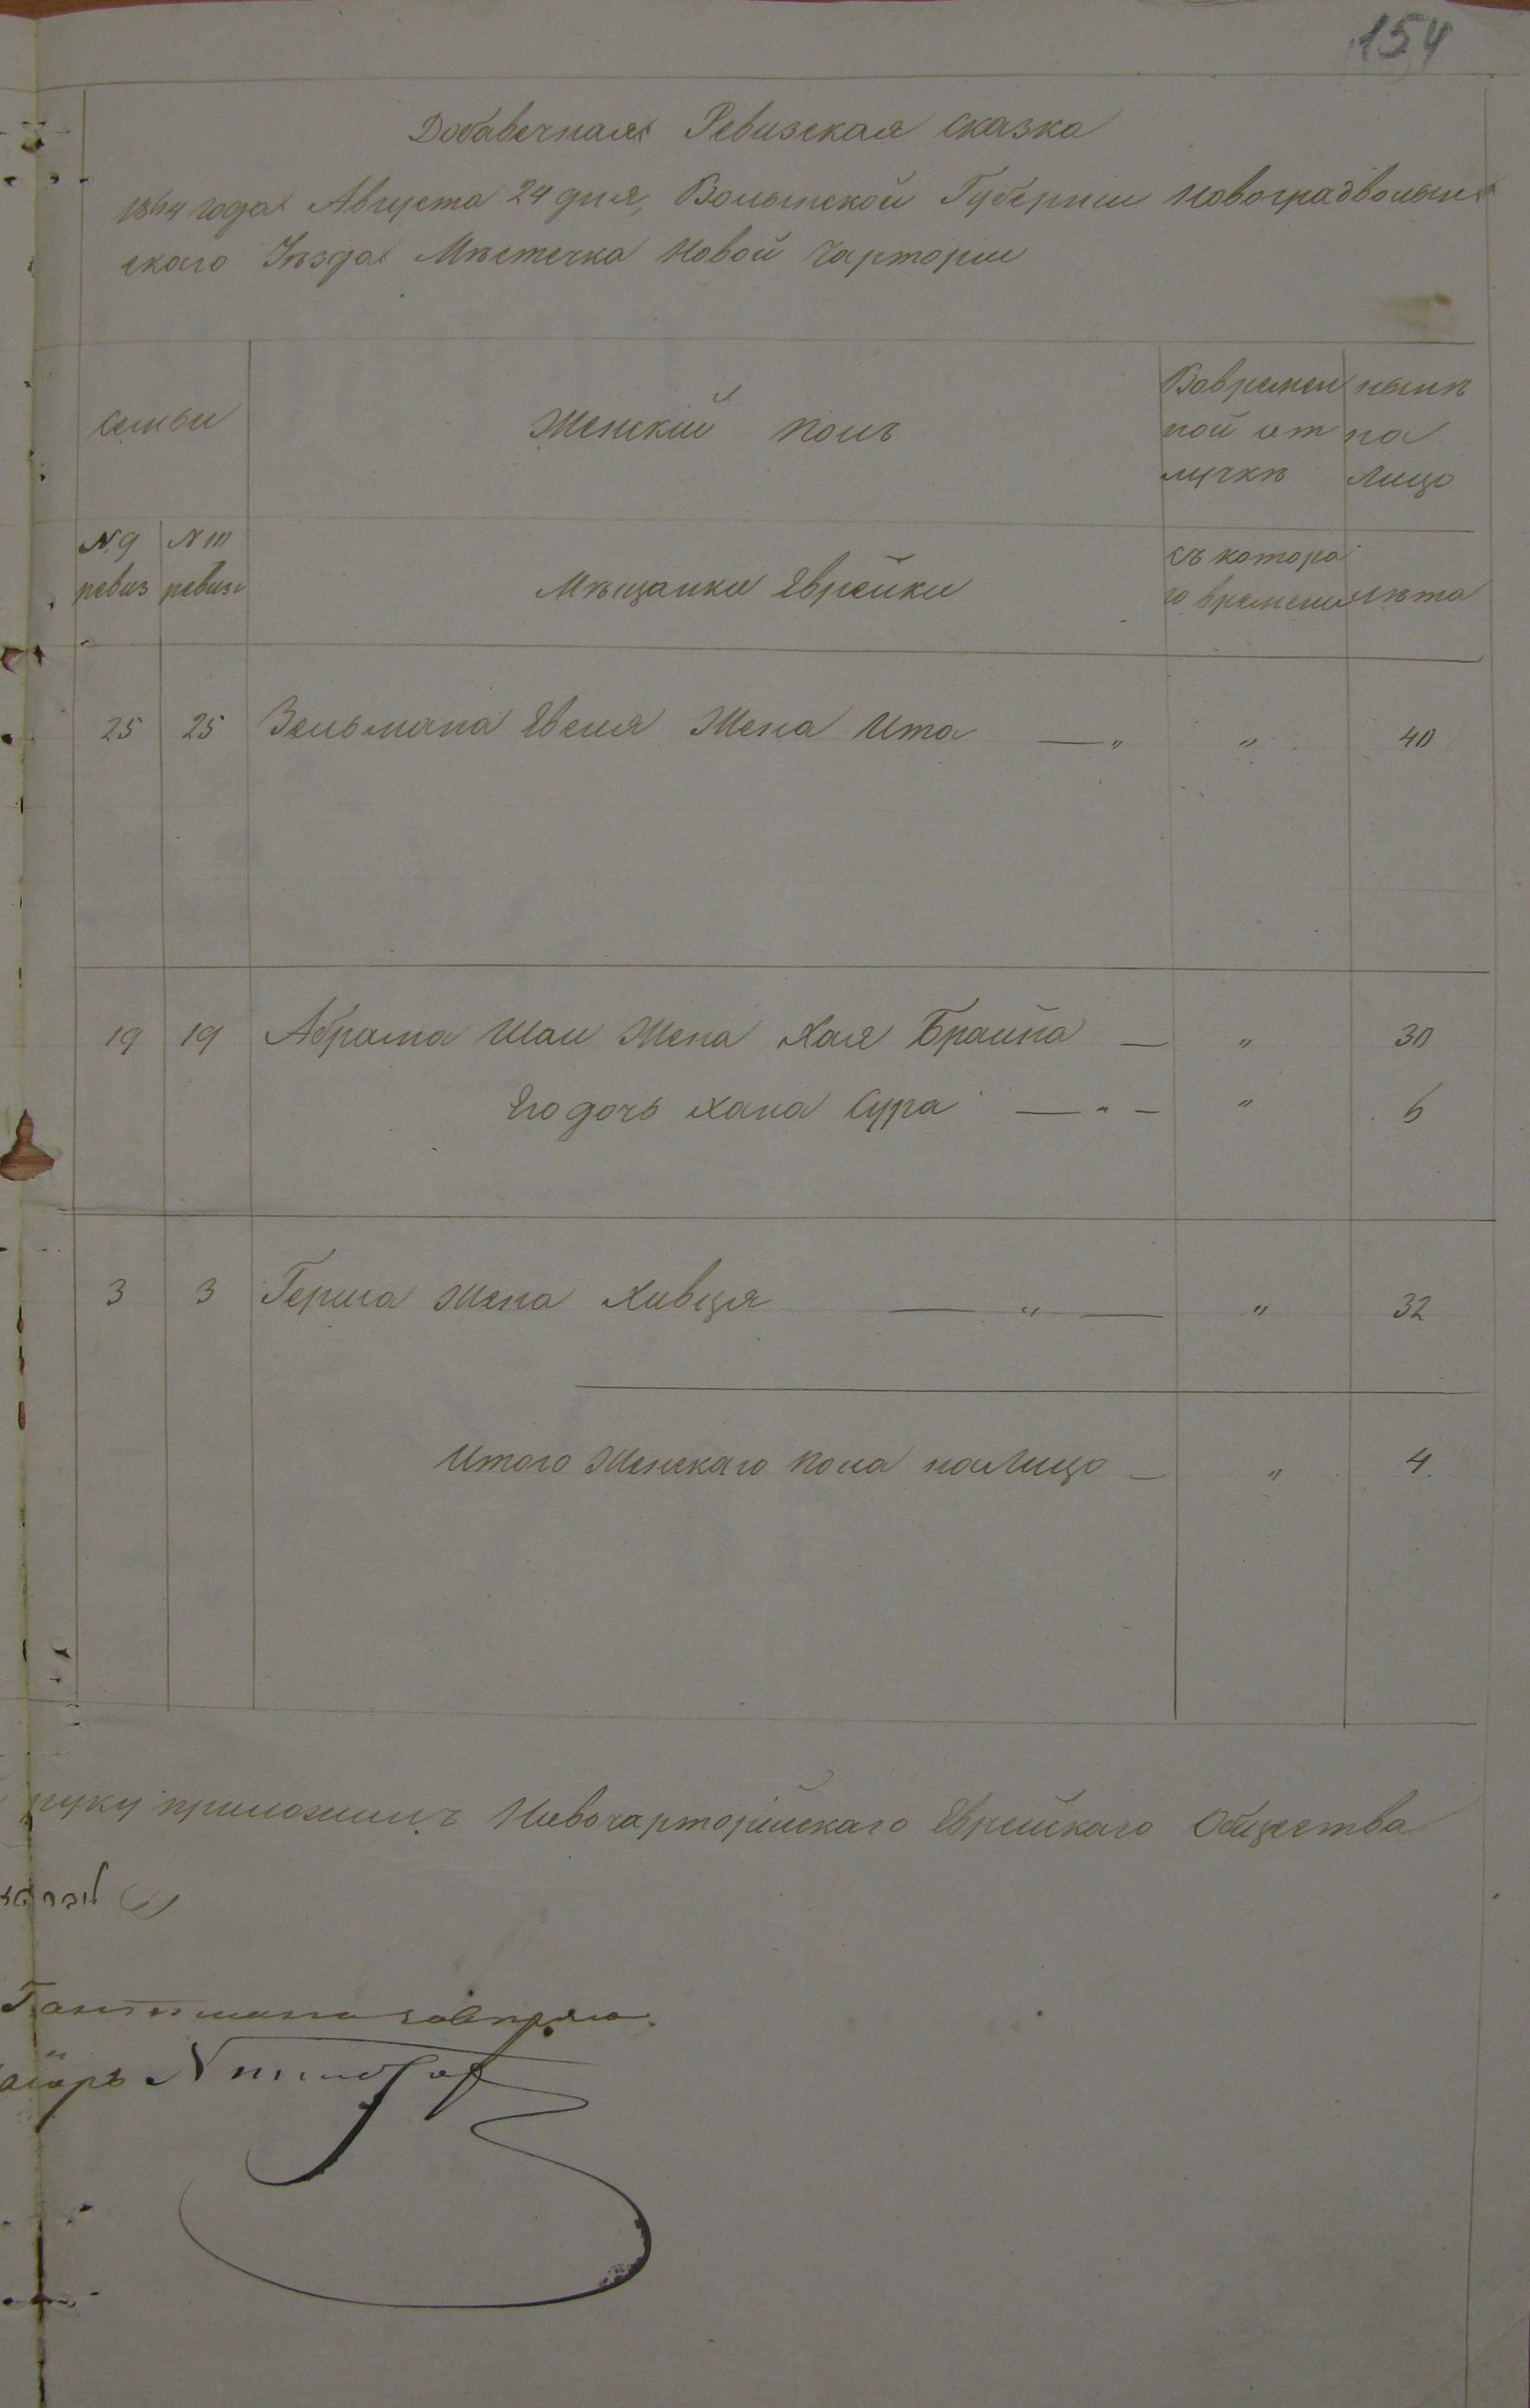 154
Добавечная Ревизская сказка
1864 года Августа 24 дня, Волынской Губернии Новоградволын
скаго Уѣзда Мѣстечка Новой Чартории
семьи
Женскій полъ
Вовремен
ной от
лучкѣ
нынѣ
на
лицо
N 9
ревиз
N 10
ревизи
Мѣщанки Еврейки
съ которо
го времени
лѣта
25 25 Зельмана Евеля Жена Ита — " " 40
19 19 Абрама Шаи Жена Хая Брайна — " 30
Его дочь Хана Сура — " — " 6
3 3 Герша жена Хивця — " — " 32
Итого Женскаго пола налицо — " 4
руку приложилъ Новочарторійскаго Еврейскаго Общества